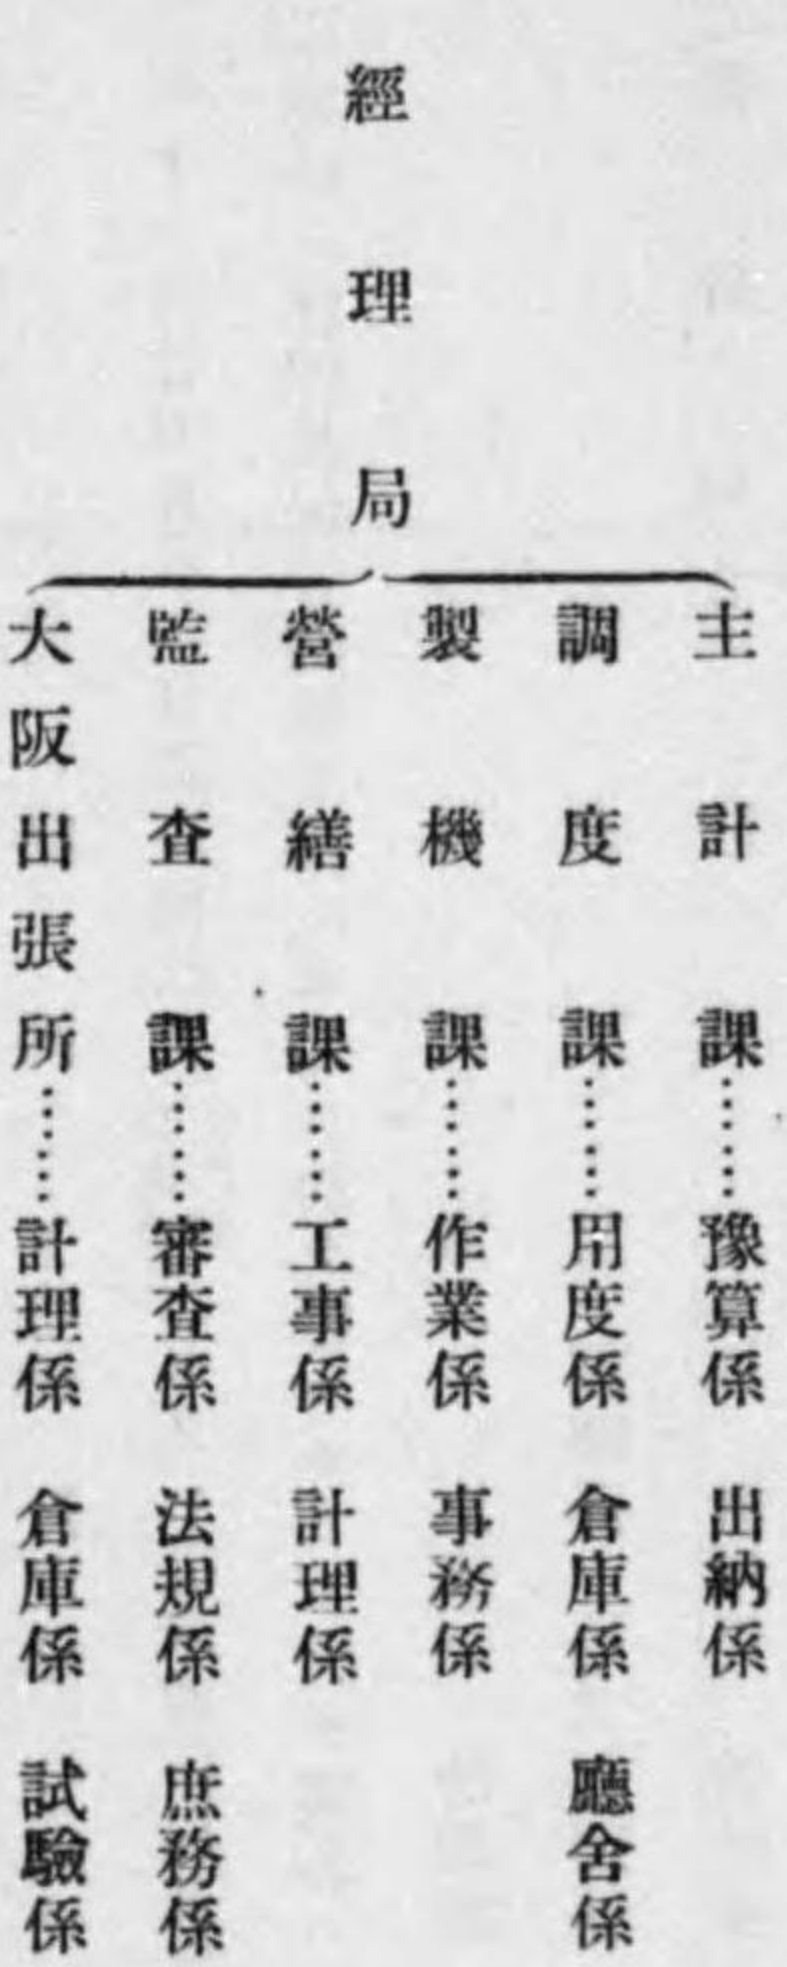 經理局
主計課……豫算係 出納係
調度課……用度係 倉庫係 廳舍係
製機課……作業係 事務係
營繕課……工事係 計理係
監査課……審査係 法規係 庶務係
大阪出張所……計理係 倉庫係 試驗係